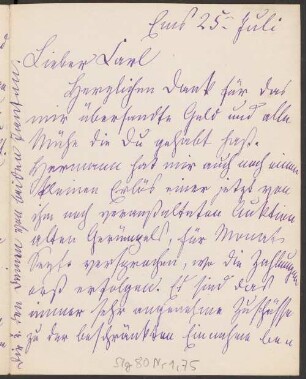 Ems 25ten Juli
Lieber Carl
Herzlichen Dank für das
mir übersandte Geld und alle
Mühe die Du gehabt hast.
Hermann hat mir auch noch einen
kleinen Erlös einer jetzt von
ihm noch veranstalteten Auktion
alten Gerümpels, für Monat
Sept. versprochen, wo die Zahlungen
erst erfolgen. Es sind das
immer sehr angenehme Zuschüsse
zu der beschränkten Einnahme
die 2. den Damen von beiden Tanten.
Slg 80 Nr 1,75